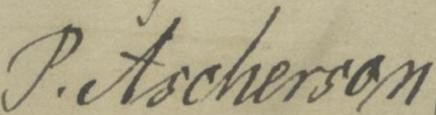 P. Ascherson